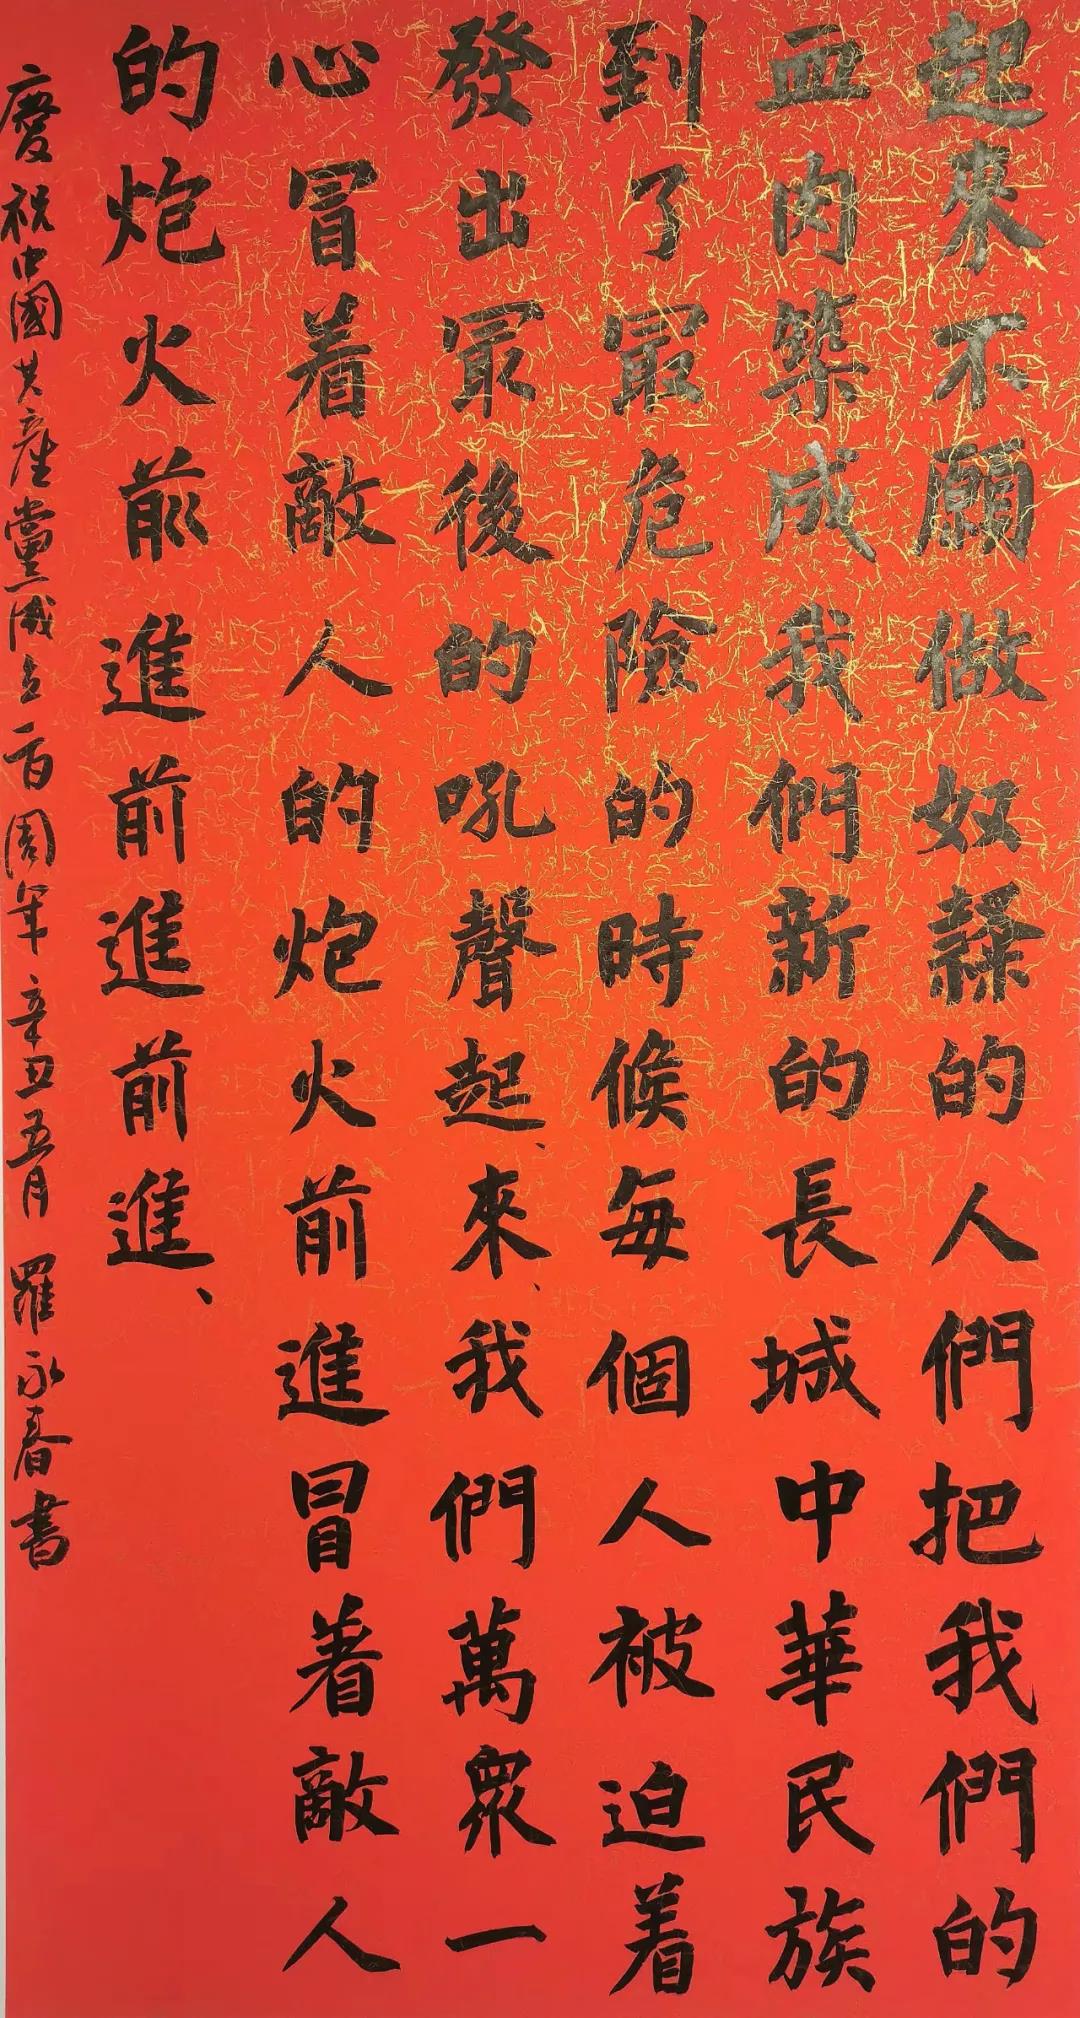 起來不願做奴隸的人們把我們的
血肉築成我們新的長城中華民族
到了最危險的時候每個人被迫着
發出最後的吼聲起、來、我們萬眾一
心冒着敵人的炮火前進冒着敵人
的炮火前進前進前進、
慶祝中國共產黨成立百周年辛丑五月 羅永春書